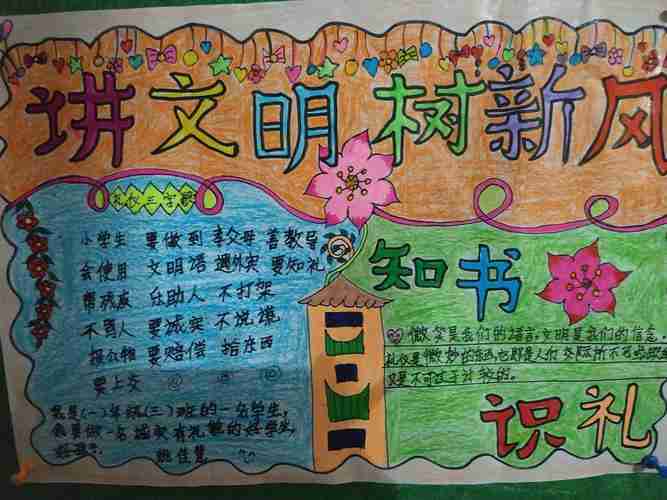 讲文明树新风
礼仪三字歌
小学生 要做到 孝父母 善教导
会使用 文明语 遇外宾 要知礼
帮残疾 乐助人 不打架
不骂人 要诚实 不说谎
损公物 要赔偿 拾东西
要上交
我是(一)年级(三)班的一名学生,
我要做一名诚实有礼貌的好学生,
姚佳慧
知书
微笑是我们的语言,文明是我们的信念.
礼仪是微妙的东西,也即是人们交际所不可
又是不可过于计较的。
识礼